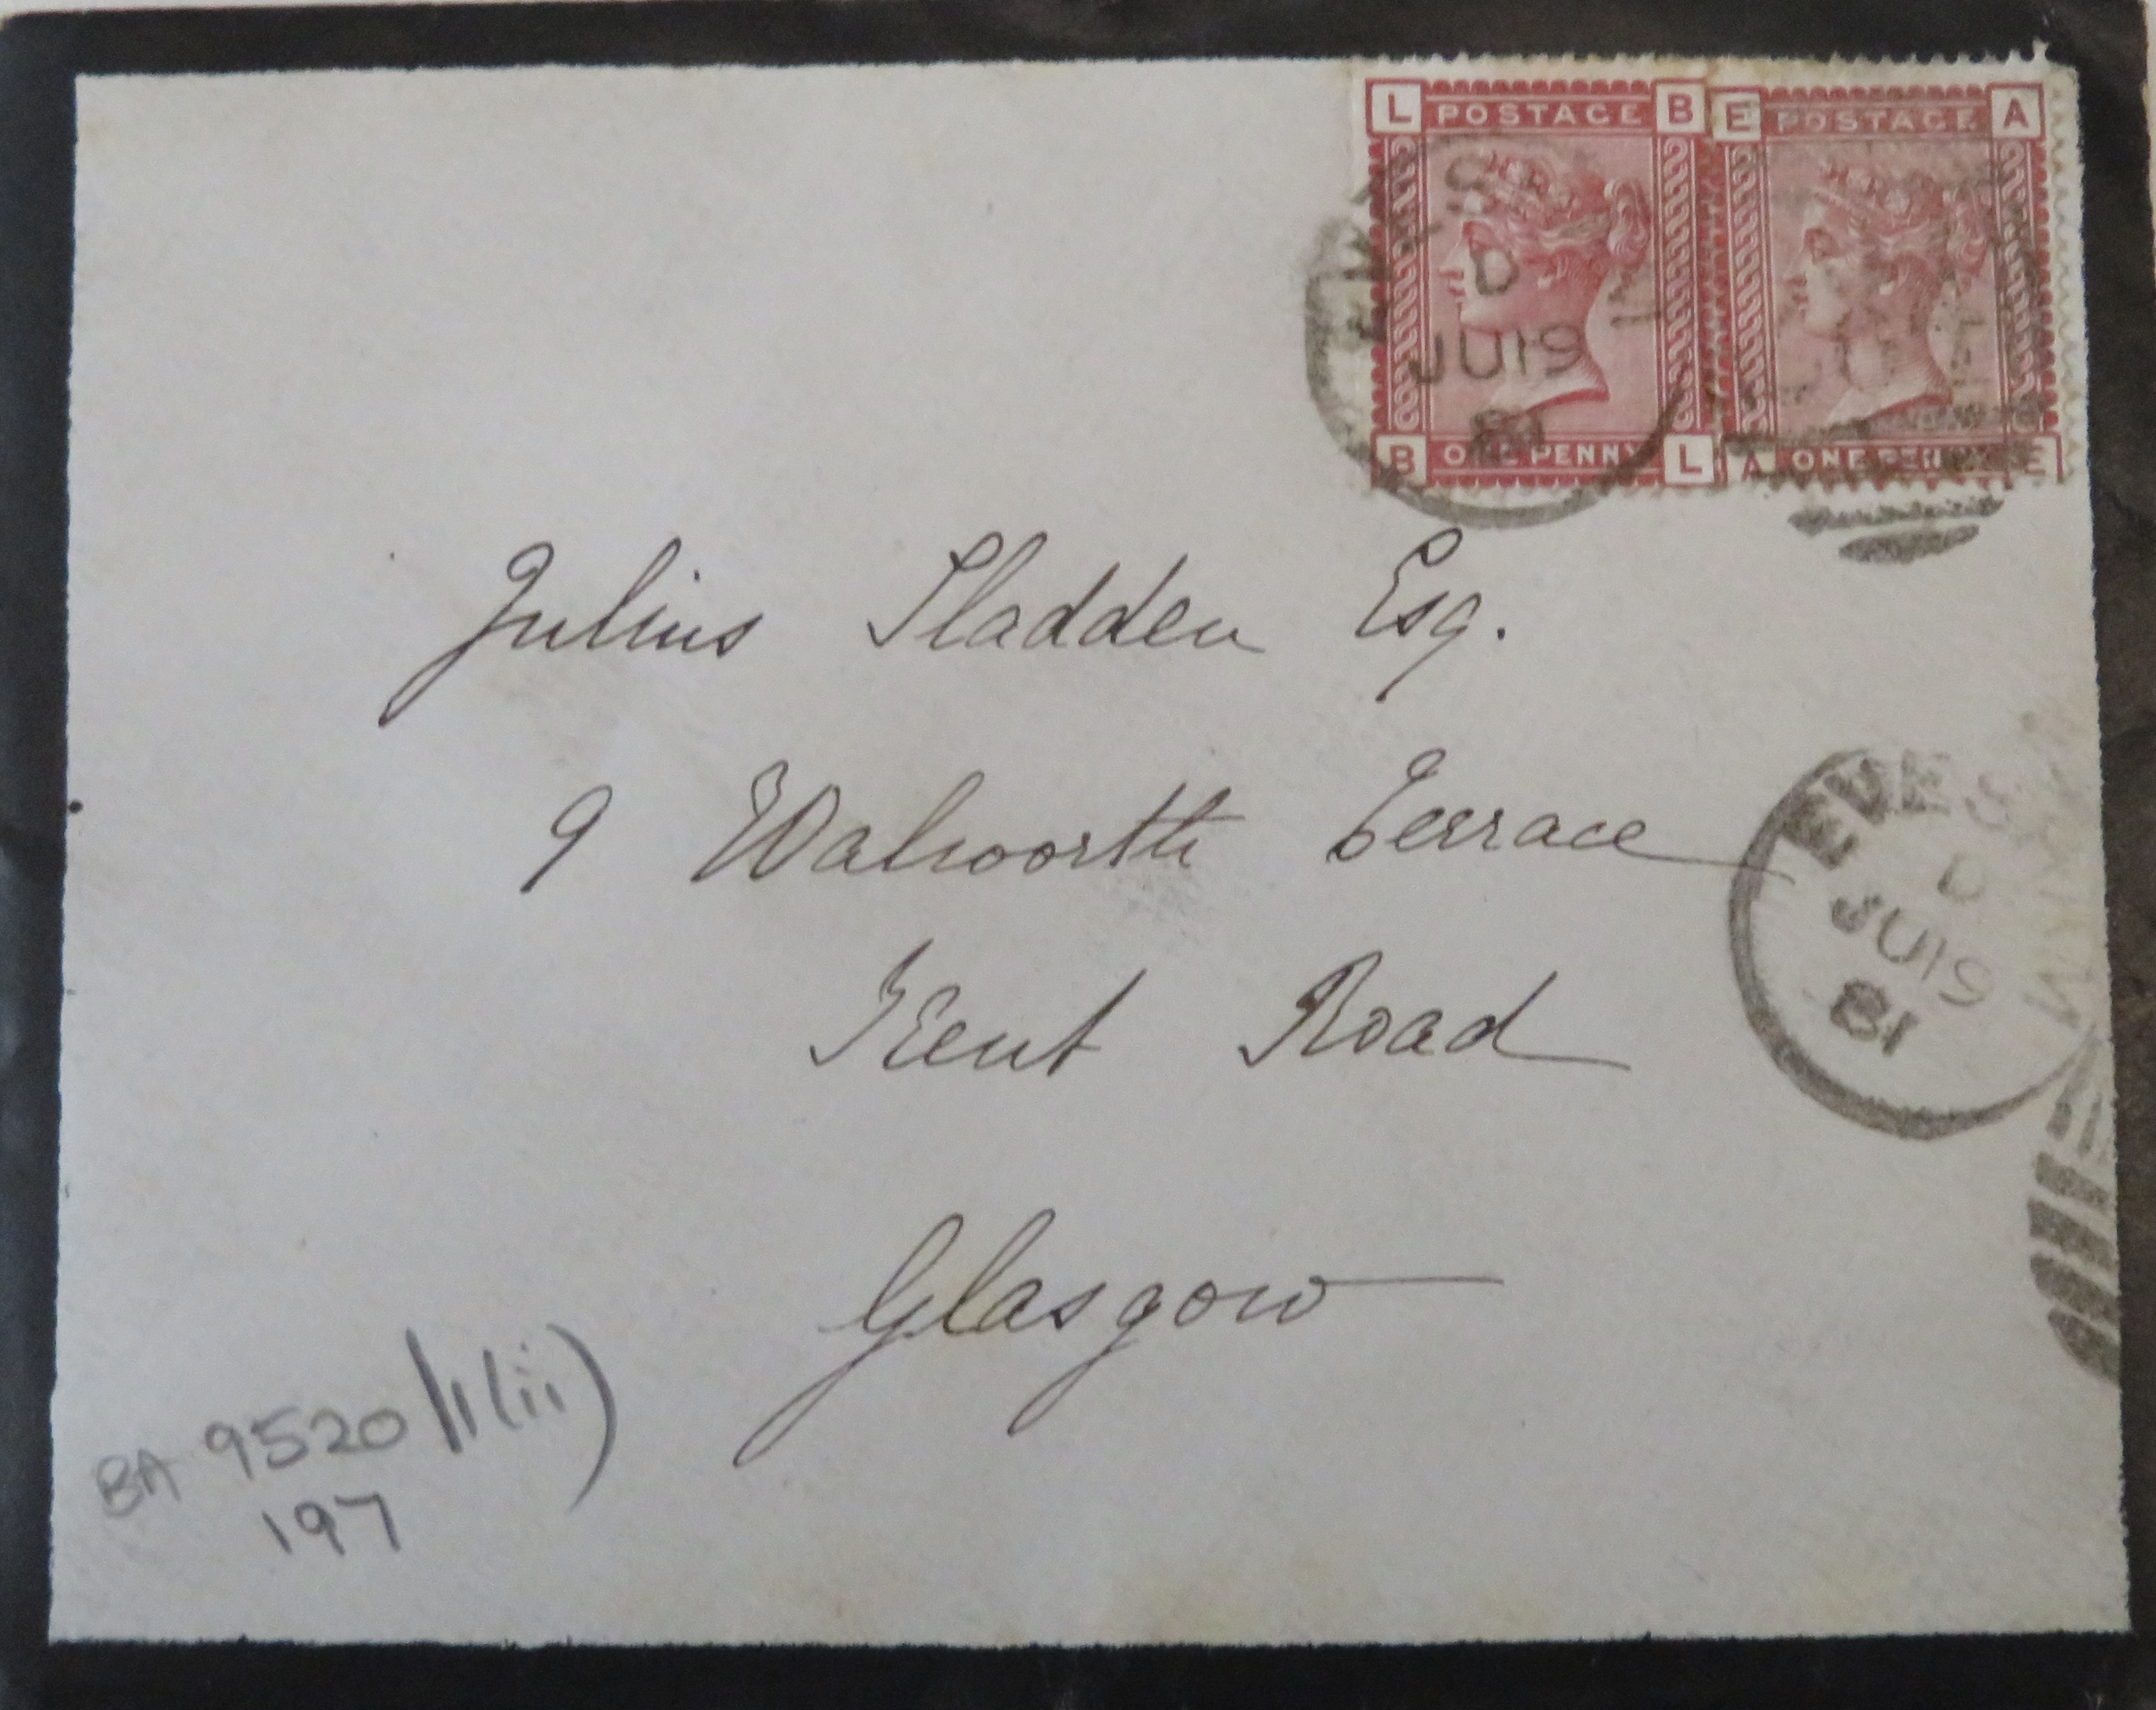 L POSTAGE B E POSTAGE A
B ONE PENNY L A ONE PENNY E
D
JU 19
81
Julius Sladden Esq.
9 Walworth Terrace
Kent Road
Glasgow
EVESHAM
D
JU 19
81
BA 9520/1(ii)
197